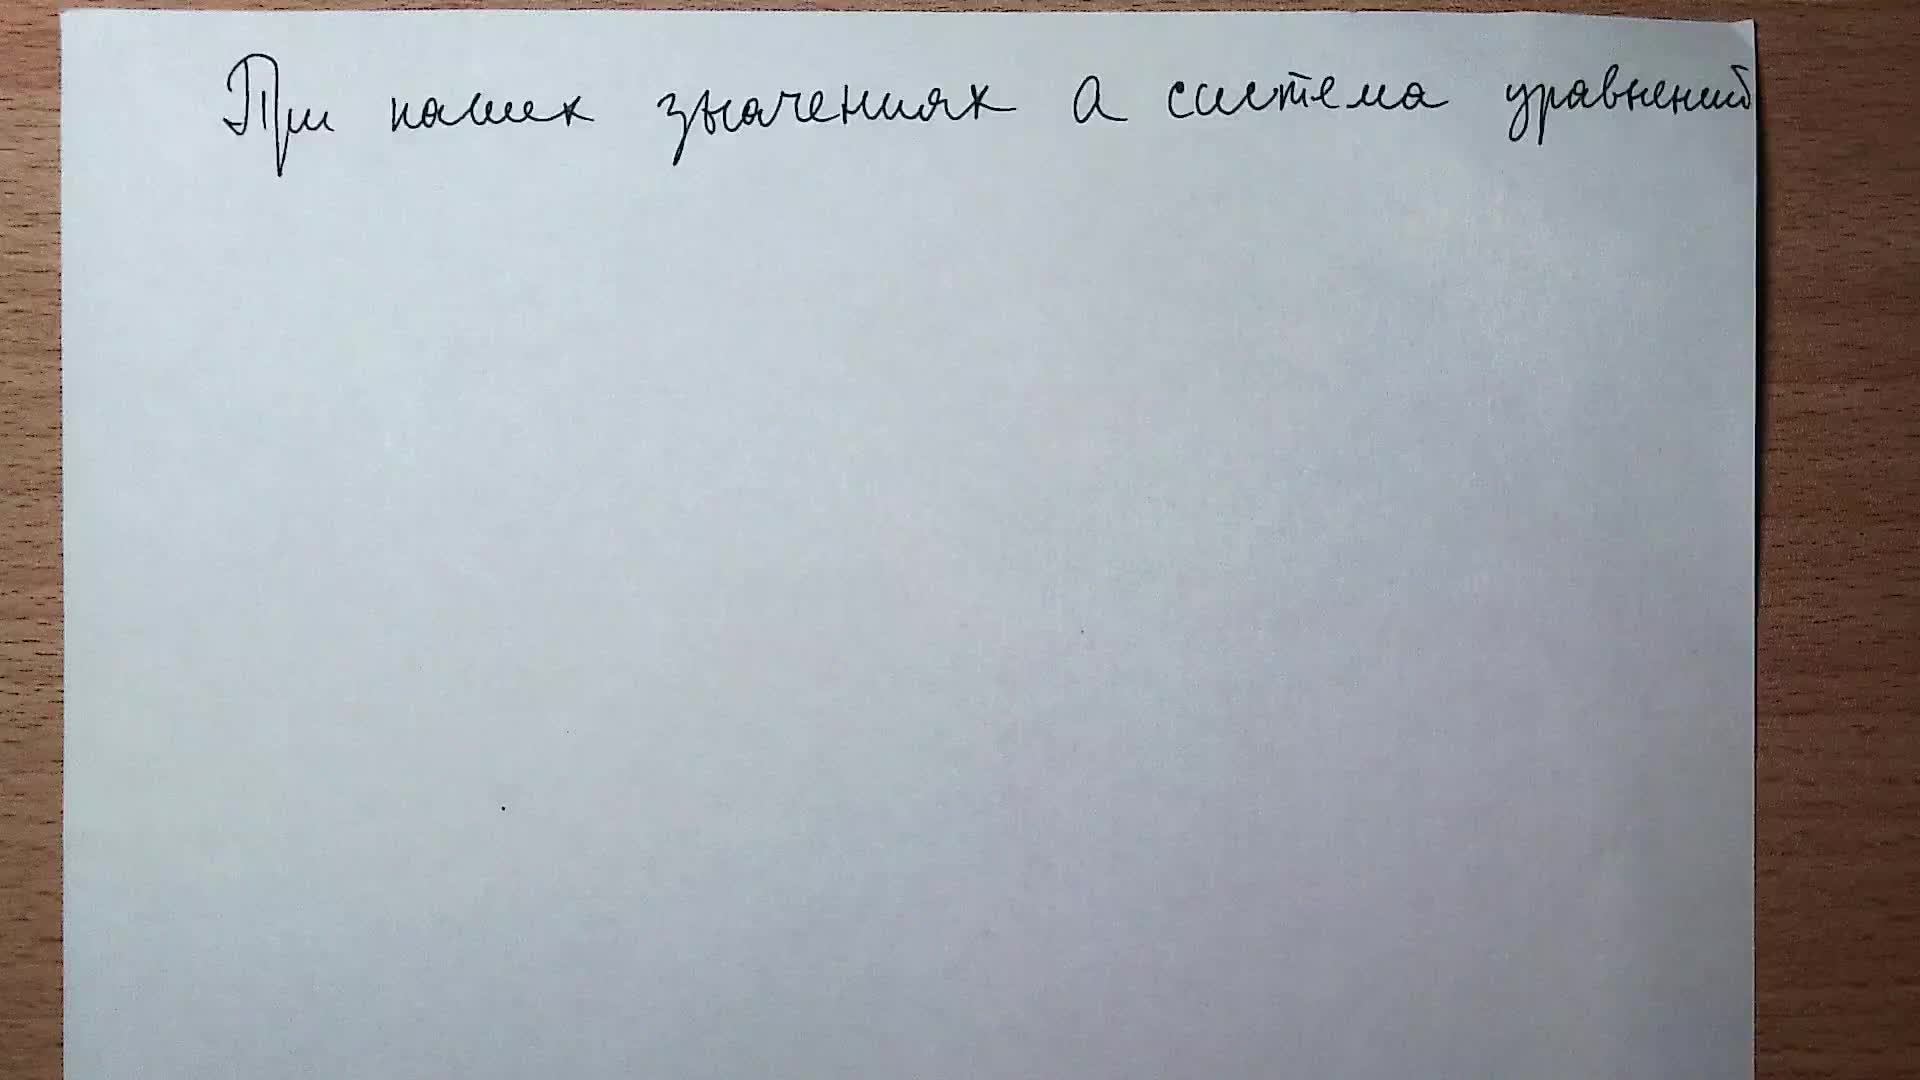 При каких значениях а система уравнений